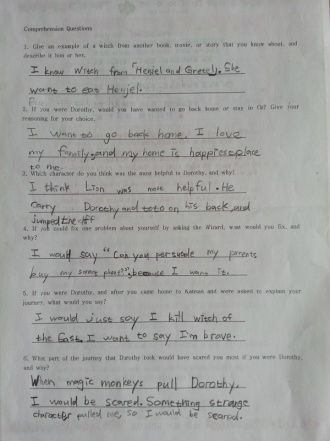 Comprehension Questions
1. Give an example of a witch from another book, movie, or story that you know about, and
describe it him or her.
I know witch from "Heniel and Gretel". She
want to eat Henjel.
2. If you were Dorothy, would you have wanted to go back home or stay in Oz? Give your
reasoning for your choice.
I want to go back home. I love
my family, and my home is happiest place
to me.
3. Which character do you think was the most helpful to Dorothy, and why?
I think Lion was more helpful. He
Carry Dorothy and toto on his back, and
jumped the
4. If you could fix one problem about yourself by asking the Wizard, what would you fix, and
why?
I would say "Can you persuade my parents
buy my smart phone?", because I want it.
5. If you were Dorothy, and after you came home to Kansas and were asked to explain your
journey, what would you say?
I would just say I kill witch of
the East. I want to say I'm brave.
6. What part of the journey that Dorothy took would have scared you most if you were Dorothy,
and why?
When magic monkeys pull Dorothy,
I would be scared. Something strange
character pulled me, so I would be scared.